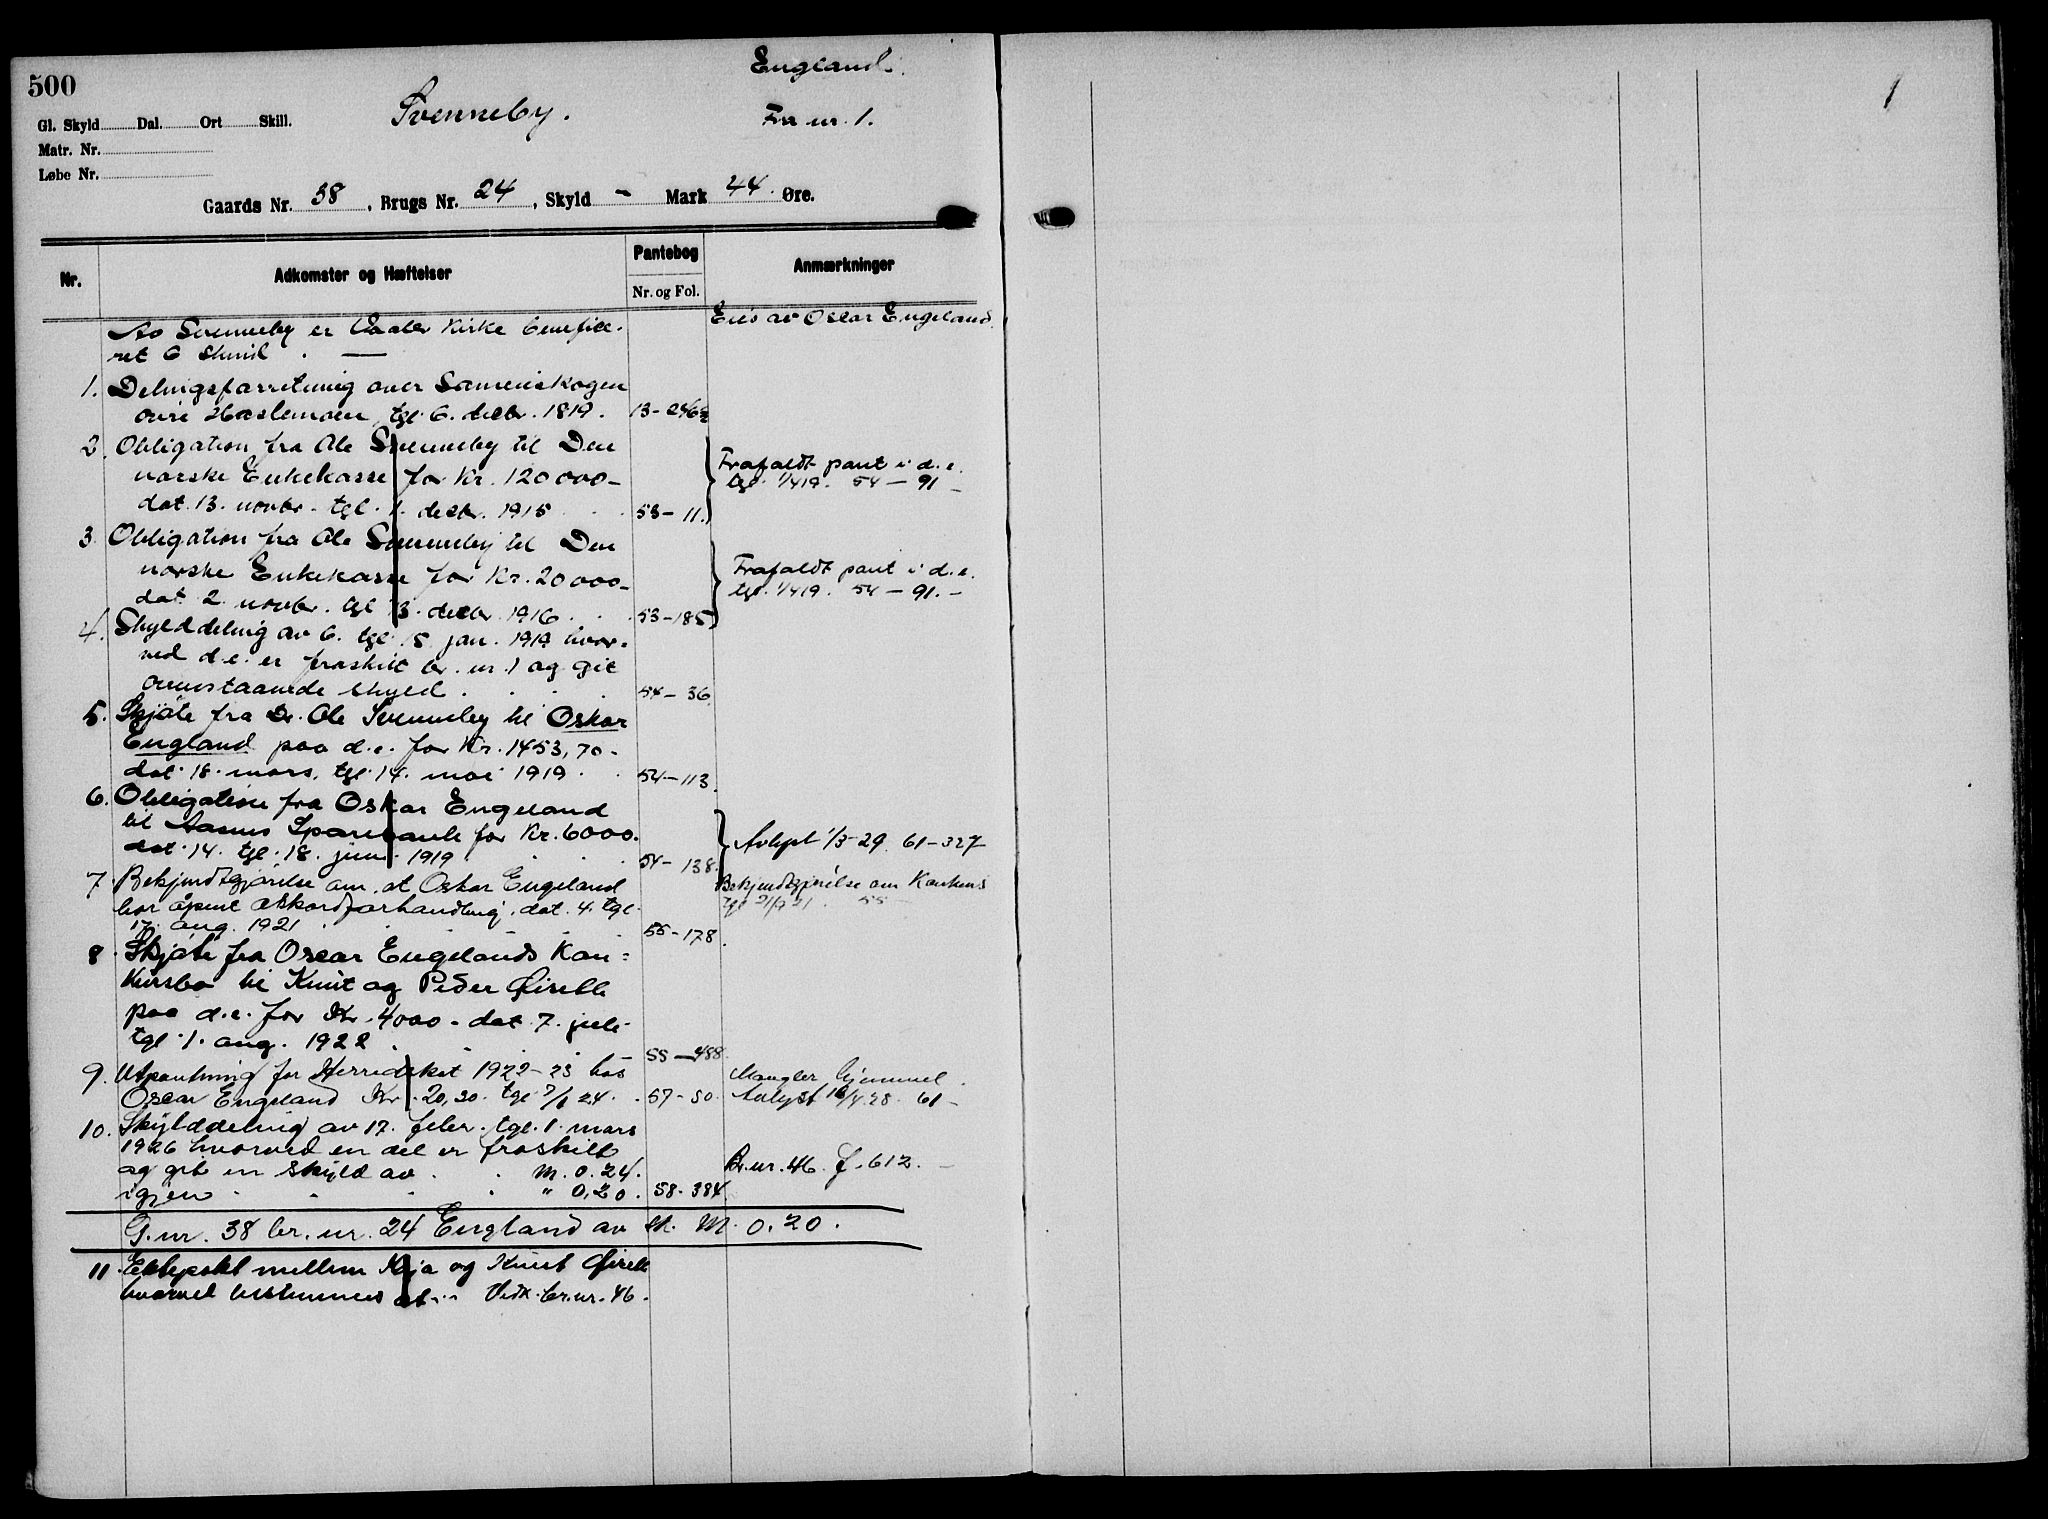 500
Engeland.
Svenneby.
Fra nr. 1.
Gl. Skyld Dal. Ort Skill.
Matr. Nr.
Løbe Nr.
Gaards Nr. 38, Brugs Nr. 24, Skyld - Mark 44. Øre.
Nr. Adkomster og Hæftelser Pantebog Anmærkninger
Nr. og Fol.
Eies av Oscar Engeland.
Av Svenneby er Vaaler Kirke benefice-
ret 6 skind. —
1. Delingsforretning over Sameieskogen
øvre Haslemoen, tgl. 6. decbr. 1819. 13-246
2. Obligation fra Ole Svenneby til Den
norske Enkekasse for Kr. 120 000-
dat. 13. novbr. tgl. 1. decbr. 1915 53-11.
Frafaldt pant i d.e.
tgl. 1/4 19. 54-91-
3. Obligation fra Ole Svenneby til Den
norske Enkekasse for Kr. 20 000-
dat. 2. novbr. tgl 3. decbr. 1916 53-185
Frafaldt pant i d.e.
tgl. 1/4 19. 54-91.-
4. Skylddeling av 6. tgl. 15 jan. 1919 hvor-
ved d.e. er fraskilt br. nr. 1 og git
ovenstaaende skyld. 54-36.
5. Skjøte fra Dr. Ole Svenneby til Oskar
England paa d.e. for Kr. 1453,70-
dat. 18. mars. tgl. 14. mai 1919. 54-113.
6. Obligation fra Oskar Engeland
til Aasnes Sparebank for Kr. 6000.
dat. 14. tgl. 18. juni 1919 54-138.
Avlyst 1/3-29. 61-327
7. Bekjendtgjørelse om, at Oskar Engeland
har åpnet akkordforhandling. dat. 4. tgl.
17. aug. 1921. 55-178.
Bekjendtgjørelse om Konkurs
tgl 21/9 21. 55-
8. Skjøte fra Oscar Engelands Kon-
kursbo til Knut og Peder Øisell
paa d.e. for Kr. 4000- dat. 7. juli-
tgl. 1. aug. 1922. 55-488.
9. Utpantning for Herredsskat 1922-23 hos
Oscar Engeland Kr. 20,30. tgl 7/1 24. 57-50.
Mangler hjemmel.
Avlyst 18/4.28. 61-
10. Skylddeling av 17. febr. tgl. 1. mars
1926 hvorved en del er fraskilt
og git en skyld av M. 0.24.
igjen " 0,20. 58-384.
Br.nr. 46. f. 612.-
G.nr. 38 br. nr. 24 England av sk. M. 0.20.
11. Ektepakt mellem Kaja og Knut Øisell
hvorved bestemmes at... Vidk. br.nr. 46.
1